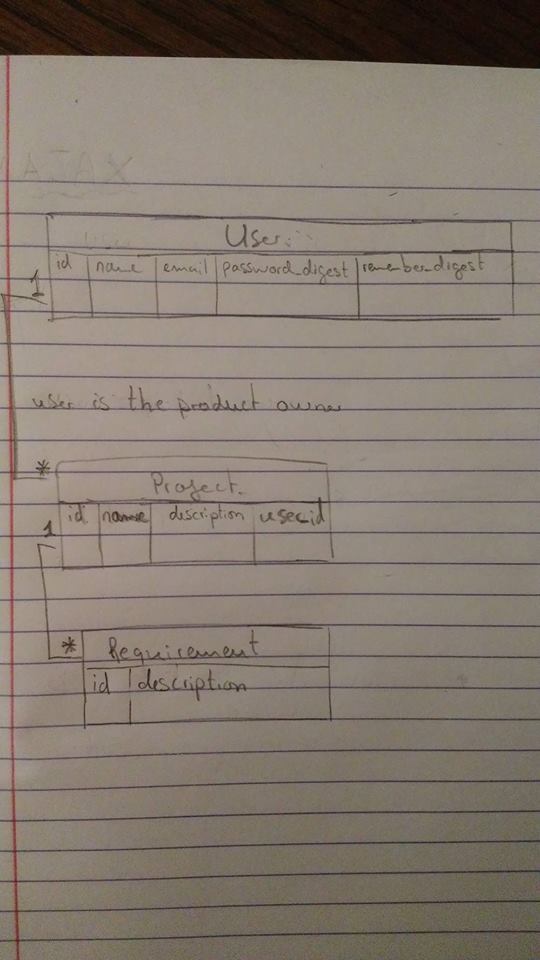 User
id name email password_digest remember_digest
1
user is the product owner
*
Project
id name description user_id
1
* Requirement
id description